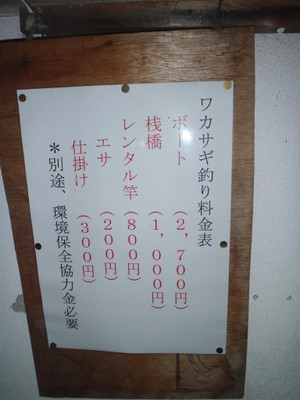 ワカサギ釣り料金表
ボート（2，700円）
桟橋（1，000円）
レンタル竿（800円）
エサ（200円）
仕掛け（300円）
＊別途、環境保全協力金必要